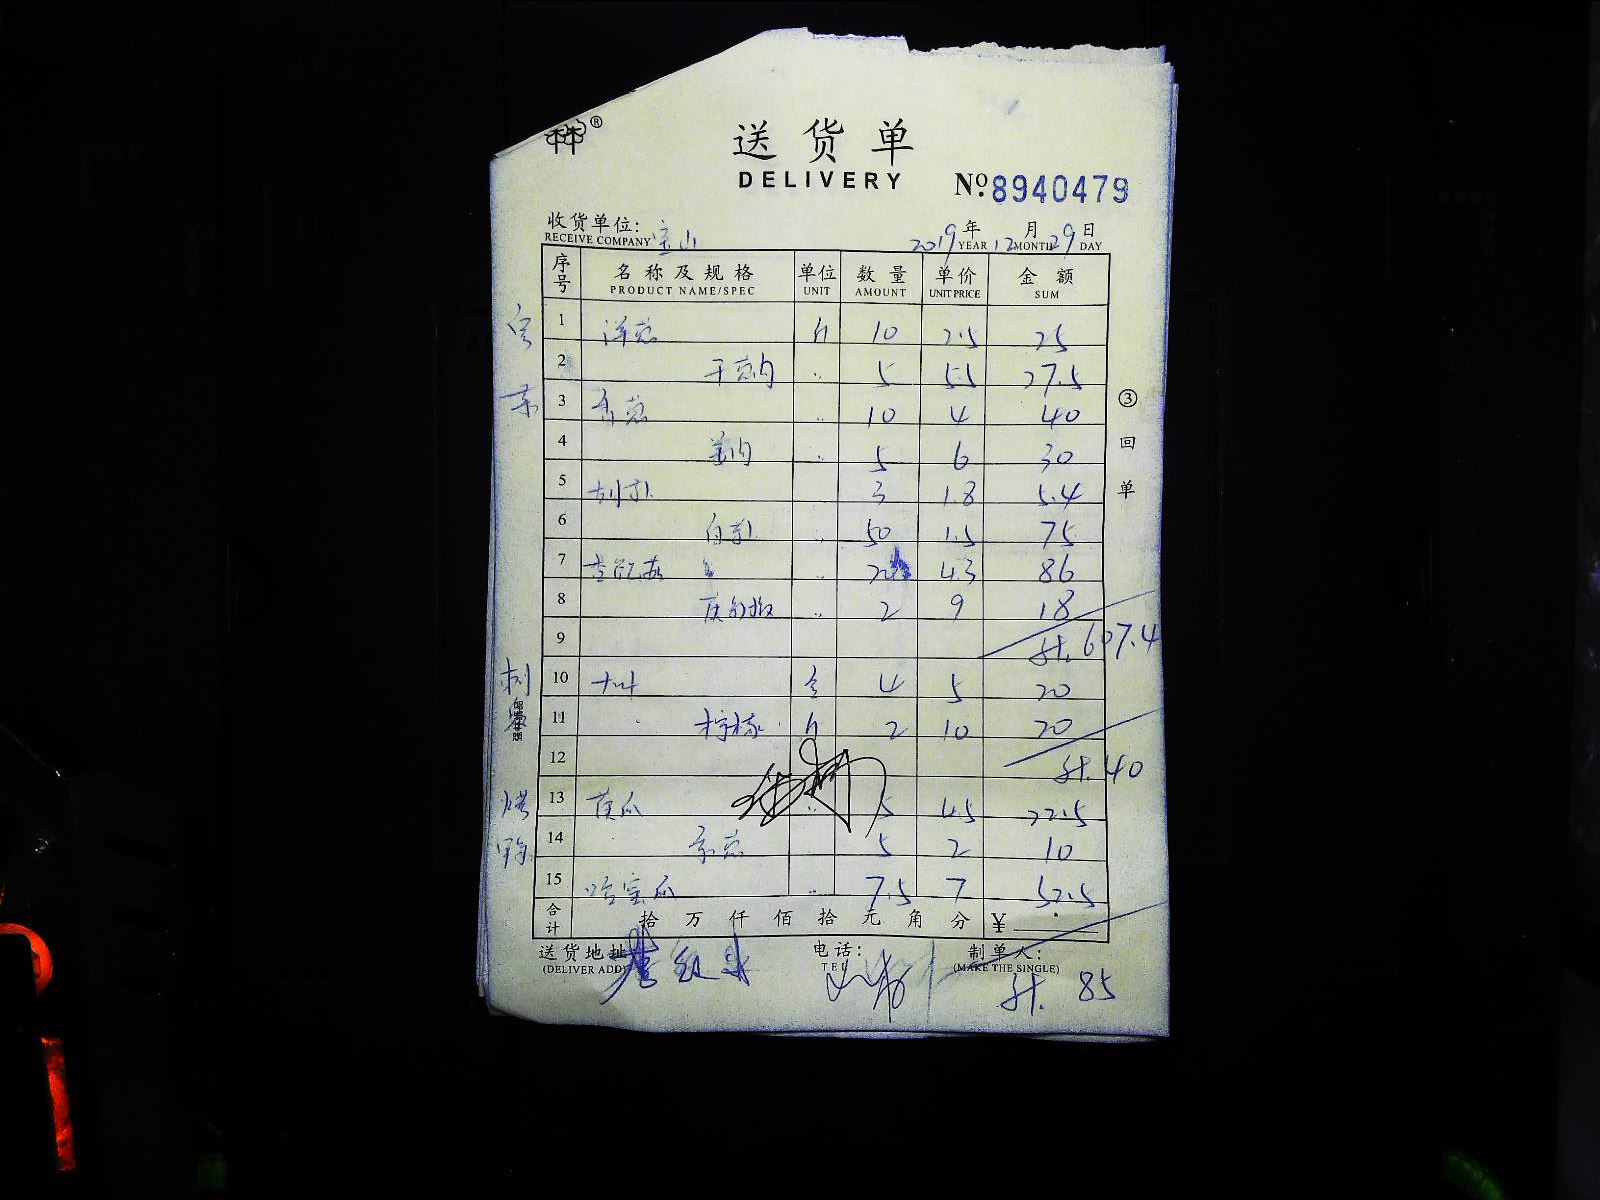 ®
送货单
DELIVERY
№ 8940479
收货单位: 宝山 2019年12月29日
RECEIVE COMPANY YEAR MONTH DAY
序号 名称及规格 单位 数量 单价 金额
PRODUCT NAME/SPEC UNIT AMOUNT UNIT PRICE SUM
1 洋葱 斤 10 2.5 25
2 干葱肉 .. 5 5.5 27.5
3 香葱 .. 10 4 40
4 姜肉 .. 5 6 30
5 3 1.8 5.4
6 .. 50 1.5 75
7 .. 20 4.3 86
8 .. 2 9 18
9 计. 607.4
10 4 5 20
11 柠檬 斤 2 10 20
12 计. 40
13 黄瓜 .. 5 4.5 22.5
14 京葱 5 2 10
15 哈密瓜 .. 7.5 7 52.5
合计 拾 万 仟 佰 拾 元 角 分 ¥
送货地址 电话: 制单人:
(DELIVER ADD) TEL (MAKE THE SINGLE)
计. 85
③回单
烤鸭